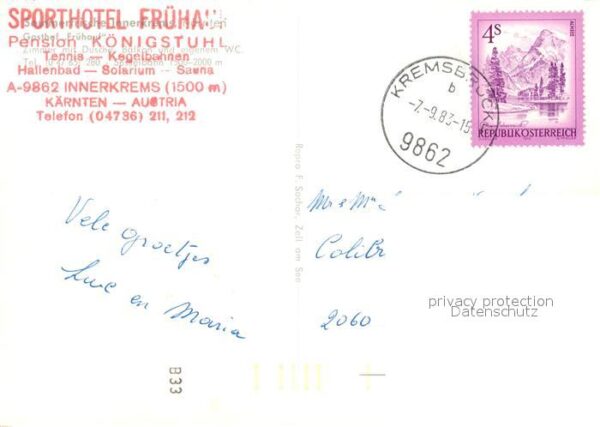 SPORTHOTEL FRÜHAUF
Pension KÖNIGSTUHL
Tennis — Kegelbahnen
Hallenbad — Solarium — Sauna
A-9862 INNERKREMS (1500 m)
KÄRNTEN — AUSTRIA
Telefon (04736) 211, 212
KREMSBRÜCKE
b
-7.-9.83-15
9862
4S
ALMSEE
REPUBLIK ÖSTERREICH
Repro F. Sochor, Zell am See
Vele groetjes
Luc en Maria
Mr & Mme
Colibr
2060
privacy protection
Datenschutz
B33